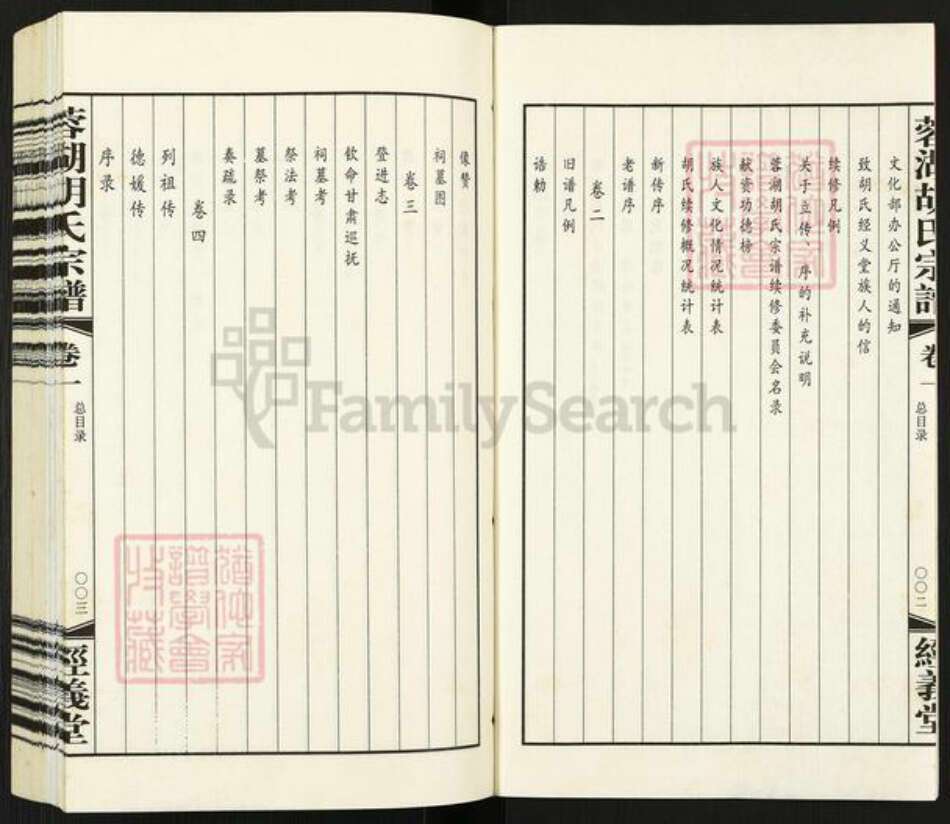 蓉湖胡氏宗譜
卷一
总目录
〇〇二
經義堂
文化部办公厅的通知
致胡氏经义堂族人的信
续修凡例
关于立传、序的补充说明
蓉湖胡氏宗谱续修委员会名录
献资功德榜
族人文化情况统计表
胡氏续修概况统计表
新传序
老谱序
卷二
旧谱凡例
诰勅
像赞
祠墓图
卷三
登进志
钦命甘肃巡抚
祠墓考
祭法考
墓祭考
奏疏录
卷四
列祖传
德媛传
序录
蓉湖胡氏宗譜
卷一
总目录
〇〇三
經義堂
譜學會
收藏
FamilySearch